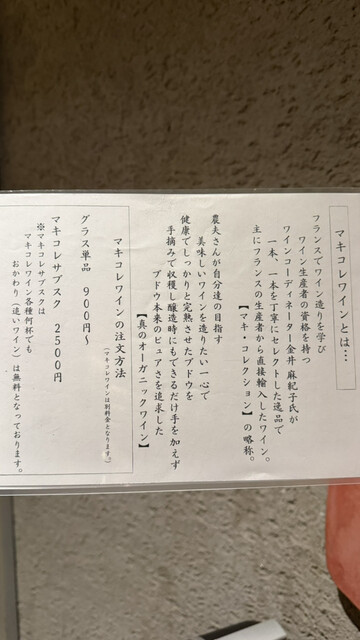 マキコレワインとは…
フランスでワイン造りを学び
ワイン生産者の資格を持つ
ワインコーディネーター金井 麻紀子氏が
一本、一本を丁寧にセレクトした逸品で
主にフランスの生産者から直接輸入したワイン。
【マキ・コレクション】の略称。
農夫さんが自分達の目指す
美味しいワインを造りたい一心で
健康でしっかりと完熟させたブドウを
手摘みで収穫し醸造時にもできるだけ手を加えず
ブドウ本来のピュアさを追求した
【真のオーガニックワイン】
マキコレワインの注文方法
(マキコレワインは別料金となります。)
グラス単品 900円～
マキコレサブスク 2500円
※マキコレサブスクは
マキコレワイン各種何杯でも
おかわり(追いワイン)は無料となっております。